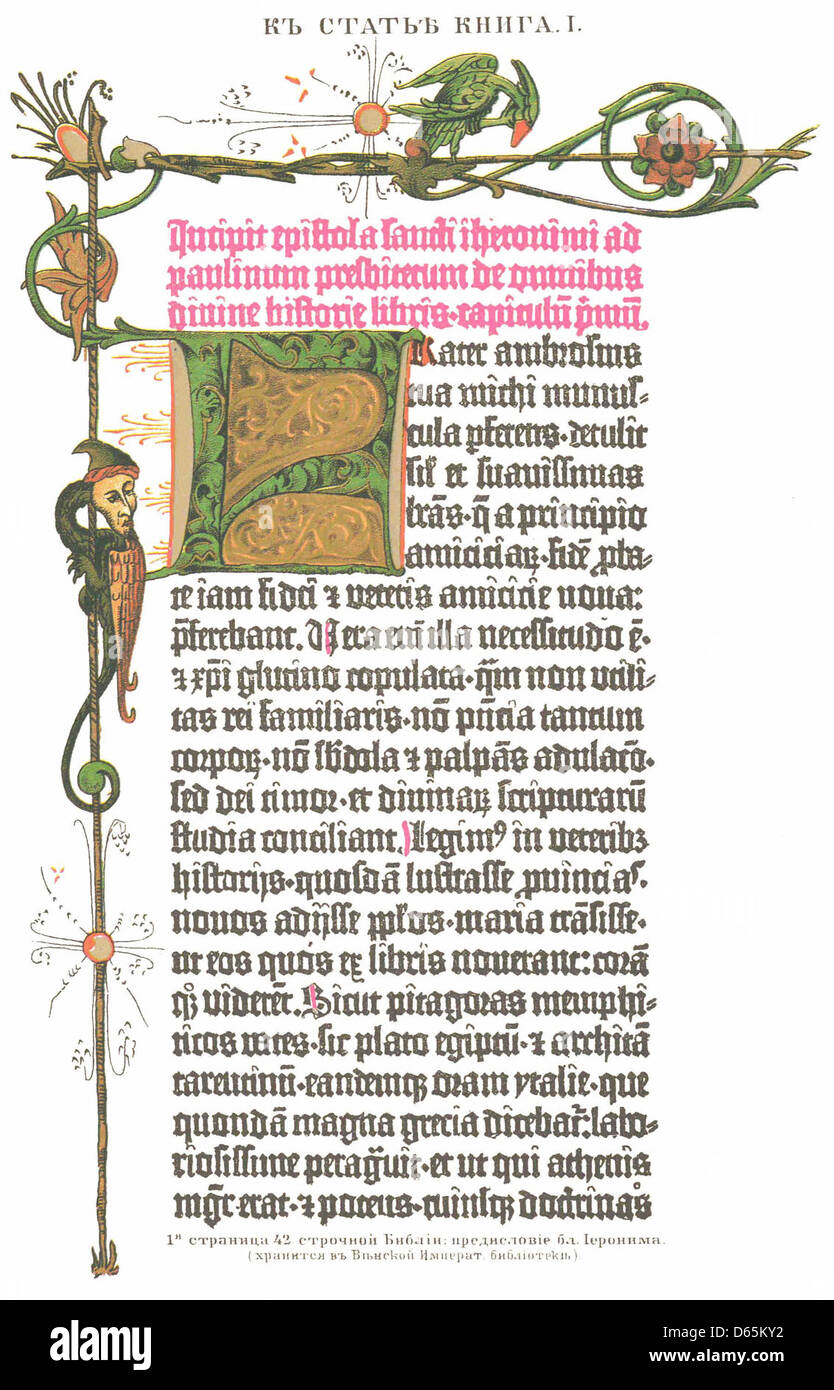 КЪ СТАТЬѢ КНИГА. I.
Incipit epistola sancti iheronimi ad
paulinum presbiterum de omnibus
divine historie libris·capitulū p̄mū.
Frater ambrosius
tua michi munus-
cula ꝑferens·detulit
sil̄ et suavissimas
l̄ras·q̄ a principio
amiciciaꝝ·fidē ꝓba-
te iam fidei ⁊ veteris amicicie nova:
p̄ferebant. Vera eni̅ illa necessitudo ē·
⁊ xp̄i glutino copulata·qm̄ non utili-
tas rei familiaris·nō pn̄cia tantum
corpoꝝ·nō sb̄dola ⁊ palpās adulacō·
sed dei timor·et divinaꝝ scripturarū
studia conciliant. Legimꝰ in veteribꝫ
historijs·quosdā lustrasse ꝓuincias·
novos adijsse ppl̄os·maria trāsisse·
ut eos quos ex libris noverant: corā
qꝫ viderēt. Sicut pitagoras memphi-
ticos vates·sic plato egiptū·⁊ architā
tarentinū·eandemqꝫ oram ytalie·que
quondā magna grecia dicebat᷑: labo-
riosissime peragᷓuit·et ut qui athenis
mgr̄ erat·⁊ potens·cuiusqꝫ doctrinas
1я страница 42 строчной Библіи: предисловіе бл. Іеронима.
(хранится въ Вѣнской Императ. библіотекѣ)
a
alamy
Image ID: D65KY2
www.alamy.com